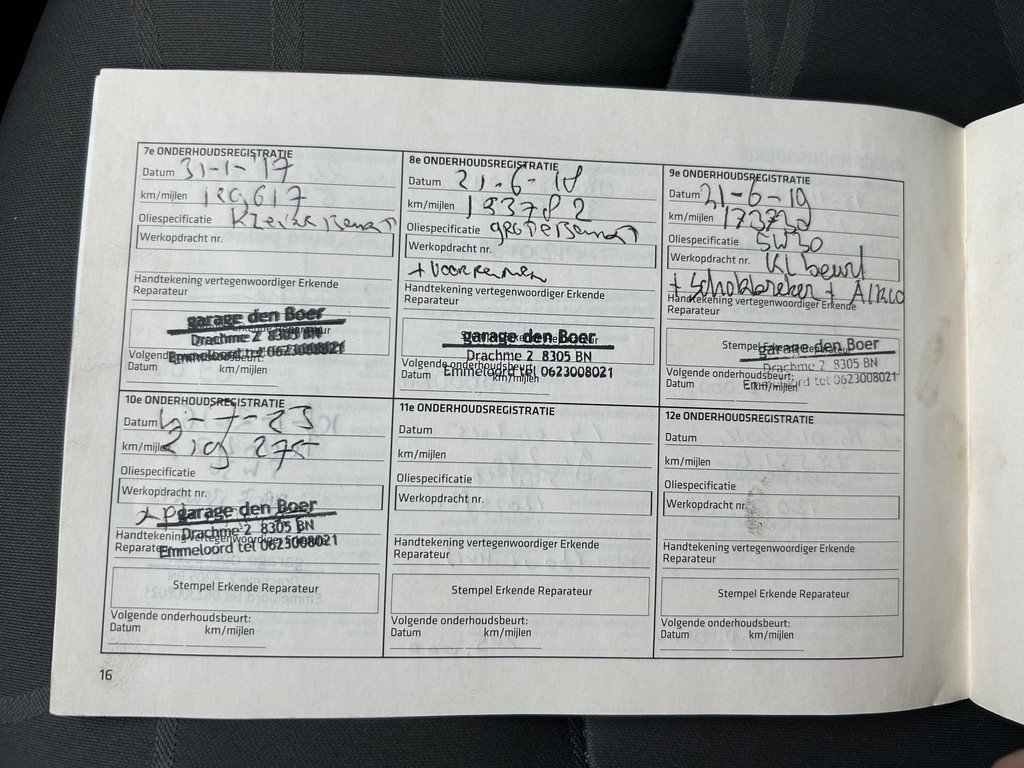 7e ONDERHOUDSREGISTRATIE
Datum 31-1-'17
km/mijlen 129617
Oliespecificatie Kleine
Werkopdracht nr.
Handtekening vertegenwoordiger Erkende
Reparateur
garage den Boer
Drachme 2 8305 BN
Emmeloord tel 0623008021
Volgende onderhoudsbeurt:
Datum
8e ONDERHOUDSREGISTRATIE
Datum 21-6-18
km/mijlen 193782
Oliespecificatie
Werkopdracht nr.
+ Voorremmen
Handtekening vertegenwoordiger Erkende
Reparateur
garage den Boer
Drachme 2 8305 BN
Volgende onderhoudsbeurt:
Emmeloord tel 0623008021
Datum km/mijlen
9e ONDERHOUDSREGISTRATIE
Datum 21-6-19
km/mijlen
Oliespecificatie 5W30
Werkopdracht nr. Kl beurt
+ Schokbreker + AIRCO
Handtekening vertegenwoordiger Erkende
Reparateur
Stempel Erkende Reparateur
garage den Boer
Drachme 2 8305 BN
Volgende onderhoudsbeurt:
Emmeloord tel 0623008021
Datum km/mijlen
10e ONDERHOUDSREGISTRATIE
Datum
km/mijlen 219 275
Oliespecificatie
Werkopdracht nr.
garage den Boer
Drachme 2 8305 BN
Emmeloord tel 0623008021
Handtekening vertegenwoordiger Erkende
Reparateur
Stempel Erkende Reparateur
Volgende onderhoudsbeurt:
Datum km/mijlen
11e ONDERHOUDSREGISTRATIE
Datum
km/mijlen
Oliespecificatie
Werkopdracht nr.
Handtekening vertegenwoordiger Erkende
Reparateur
Stempel Erkende Reparateur
Volgende onderhoudsbeurt:
Datum km/mijlen
12e ONDERHOUDSREGISTRATIE
Datum
km/mijlen
Oliespecificatie
Werkopdracht nr.
Handtekening vertegenwoordiger Erkende
Reparateur
Stempel Erkende Reparateur
Volgende onderhoudsbeurt:
Datum km/mijlen
16